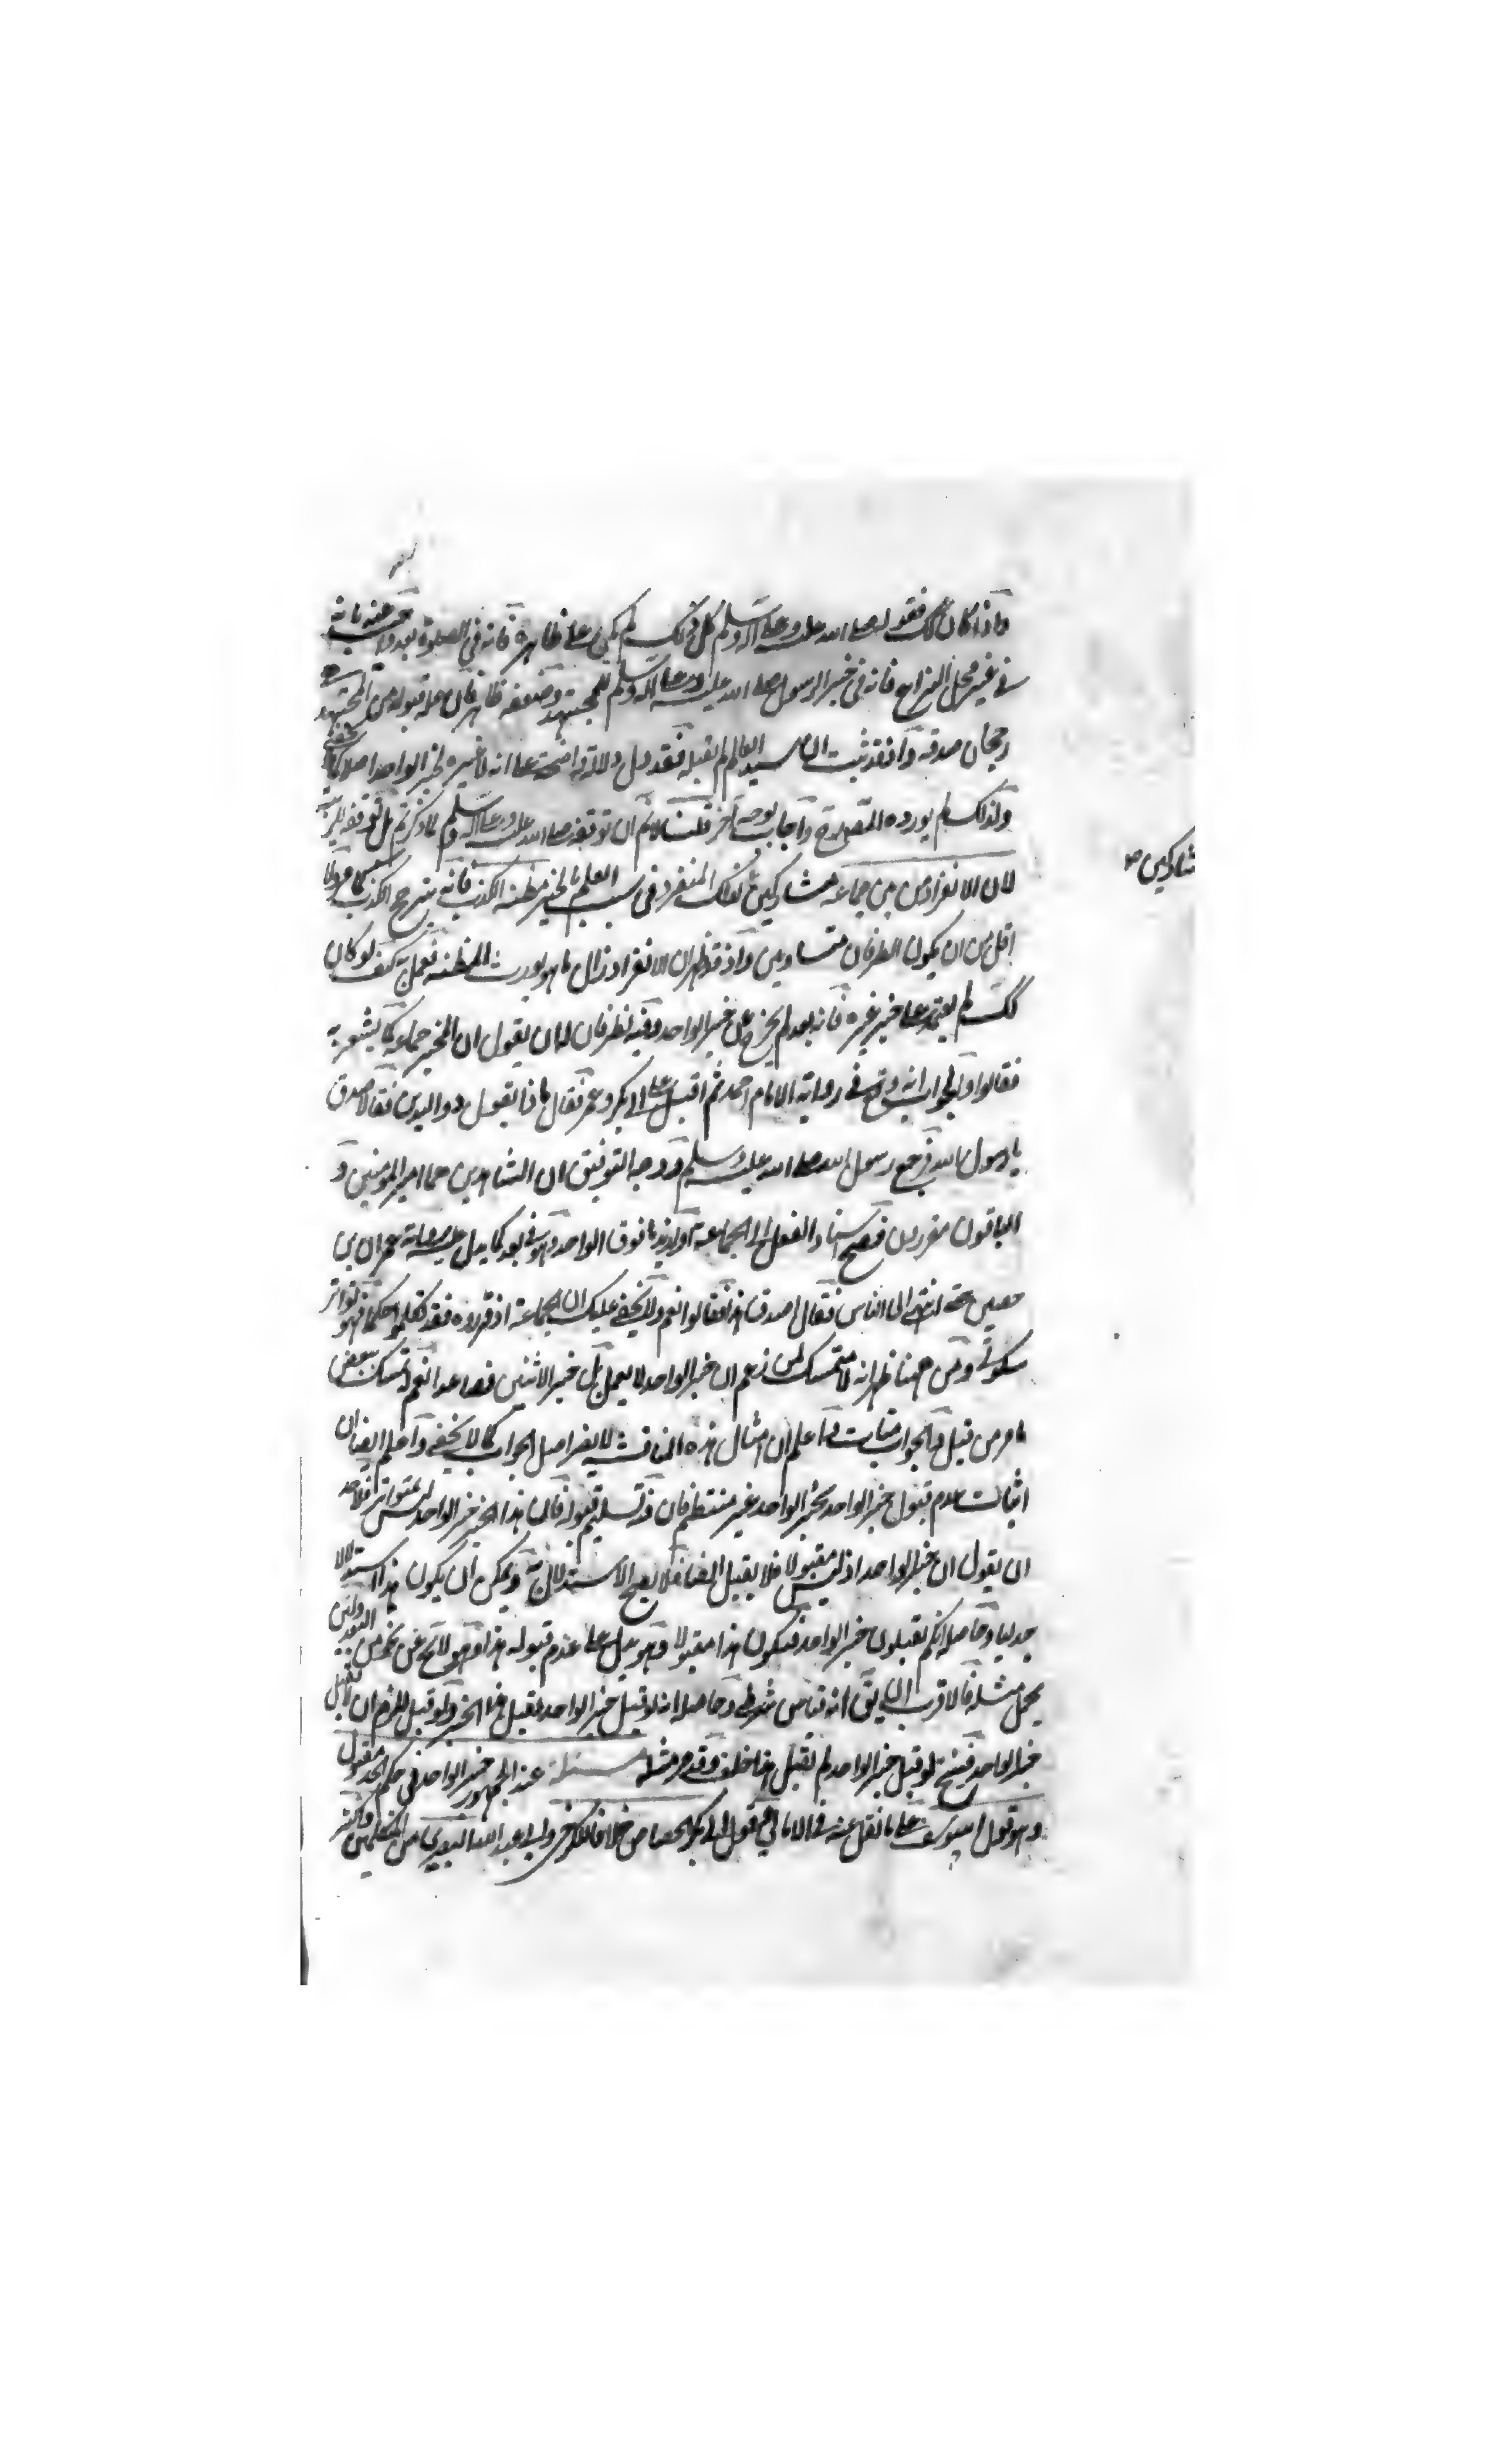 واذا كان كك فقوله صلى الله عليه وعلى آله وسلم كل ذلك لم يكن على ظاهره فانه في الصلوة بعد واجيب عنه بانه
في غير محل النزاع فانه في خبر الرسول صلى الله عليه وعلى آله وسلم للمجتهد وضعفه ظاهر فان علة قبوله من المجتهد
رجحان صدقه واذ قد ثبت ان سيد العالم لم يقبله فقد دل دلالة واضحة على انه لا خبر الواحد اصلا كما لا يخفى
ولذلك لم يورده المصنف واجاب بوجه آخر قلنا لا نم ان توقفه صلى الله عليه وعلى آله وسلم لما ذكرتم بل توقفه للريبة
لان الانفراد من بين جماعة مشاركين لذلك المنفرد في سبب العلم بالخبر مظنة الكذب فانه يترجح الكذب
اقل من ان يكون الطرفان متساويين واذ قد ظهر ان الانفراد زال ما هو يورث المظنة فعمل به كيف لو كان
كك لم يعتمد على خبر غيره فانه بعد لم يخرج عن خبر الواحد وفيه نظر فان له ان يقول ان المخبر جماعة كما يشعر به
فقالوا والجواب انه وقع في رواية الامام احمد ثم اقبل على ابي بكر وعمر فقال ماذا يقول ذو اليدين فقالا صدق
يا رسول الله فرجع رسول الله صلى الله عليه وسلم ووجه التوفيق ان الشاهدين هما امير المومنين و
الباقون مقررون فيصح اسناد الفعل الى الجماعة او اريد ما فوق الواحد وهو في بعد كما يدل عليه رواية عمران بن
حصين حتى انتهى الى الناس فقال اصدق هذا فقالوا نعم ولا يخفى عليك ان الجماعة اذ قرروه فقد تكلموا حكما فهو تواتر
سكوتي ومن ههنا ظهر انه لا متمسك لمن زعم ان خبر الواحد لا يعمل بل خبر الاثنين فصاعدا نعم له تمسك ببعض
ما مر من قبل والجواب واعلم ان امثال هذه المناقشة لا يضر اصل الجواب كما لا يخفى واعلم ايضا ان
اثبات عدم قبول خبر الواحد بخبر الواحد غير منتظم فان فيه تسليم قبوله فان هذا الخبر خبر الواحد ليس بمتواتر فلاحد
ان يقول ان خبر الواحد اذ ليس مقبولا فلا يقبل ايضا فلا يصح الاستدلال به ويمكن ان يكون هذا استدلالا
جدليا وحاصله انكم تقبلون خبر الواحد فيكون هذا مقبولا وهو يدل على عدم قبوله هذا وهو لا يخ عن نحو من البعد ولئن
يحمل مثله فالاقرب ان يقال انه قياس شرطي وحاصله انه لو قبل خبر الواحد لقبل هذا الخبر ولو قبل للزم ان لا يقبل
خبر الواحد فينتج لو قبل خبر الواحد لم يقبل هذا خلف وقد مر مثله مسئلة عند الجمهور خبر الواحد في حكم الحد مقبول
وهو قول ابي يوسف على ما نقل عنه في الامالي وهو قول ابي بكر الجصاص خلافا للكرخي وابي عبد الله البصري من المتكلمين واكثر
مشاركين صح